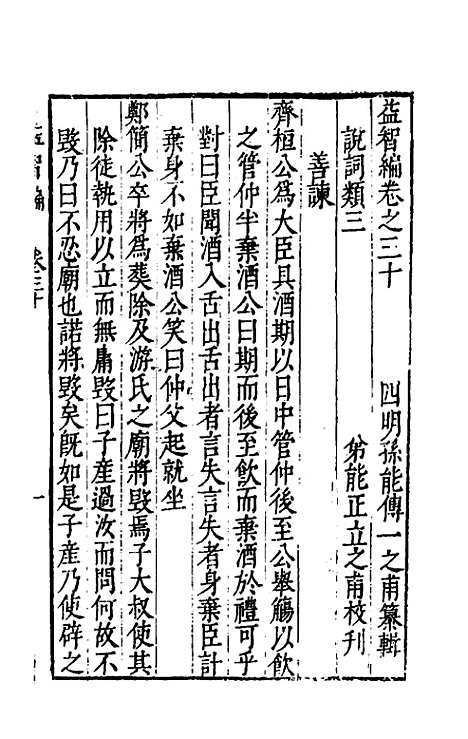 益智編卷之三十　四明孫能傳一之甫纂輯
說詞類三　弟能正立之甫校刊
善諫
齊桓公爲大臣具酒期以日中管仲後至公舉觴以飲
之管仲半棄酒公曰期而後至飲而棄酒於禮可乎
對曰臣聞酒入舌出舌出者言失言失者身棄臣計
棄身不如棄酒公笑曰仲父起就坐
鄭簡公卒將爲葬除及游氏之廟將毀焉子大叔使其
除徒執用以立而無庸毀曰子產過汝而問何故不
毀乃曰不忍廟也諾將毀矣既如是子產乃使辟之
益智編　卷三十　一